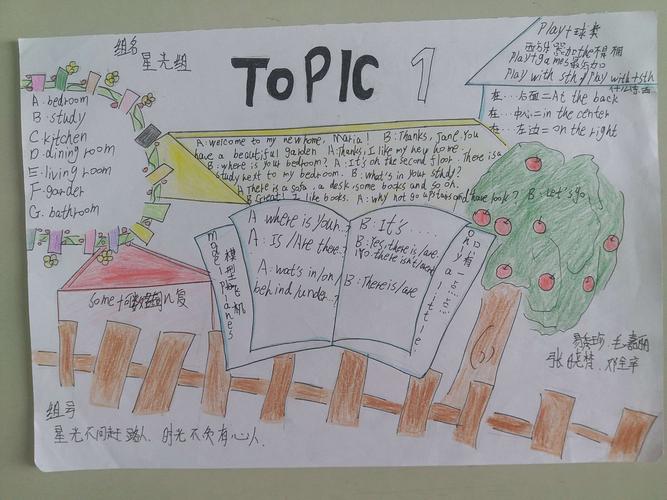 组名
星光组
TOPIC 1
Play+球类
Play+games
Play with sth / Play with+sth
在…后面=At the back
在…中心=in the center
在…左边=On the right
A. bedroom
B. study
C. kitchen
D. dining room
E. living room
F. garder
G. bathroom
A: welcome to my new home, Maria! B: Thanks, Jane. You
have a beautiful garden A: Thanks, I like my new home.
B: where is your bedroom? A: It's on the second floor. There is a
study next to my bedroom. B: what's in your study?
A There is a sofa, a desk, some books and so on.
B: Great! I like books. A: why not go upstairs and have look? B: Let's go.
A where is your…
A: Is/Are there…?
A: wat's in/on/
behind/under…?
B: It's….
B: Yes, there is/are.
No, there isn't/aren't
B: There is/are
model planes
模型飞机
only a little.
只有一点点
some+可数
复
组号
星光不问赶路人, 时光不负有心人.